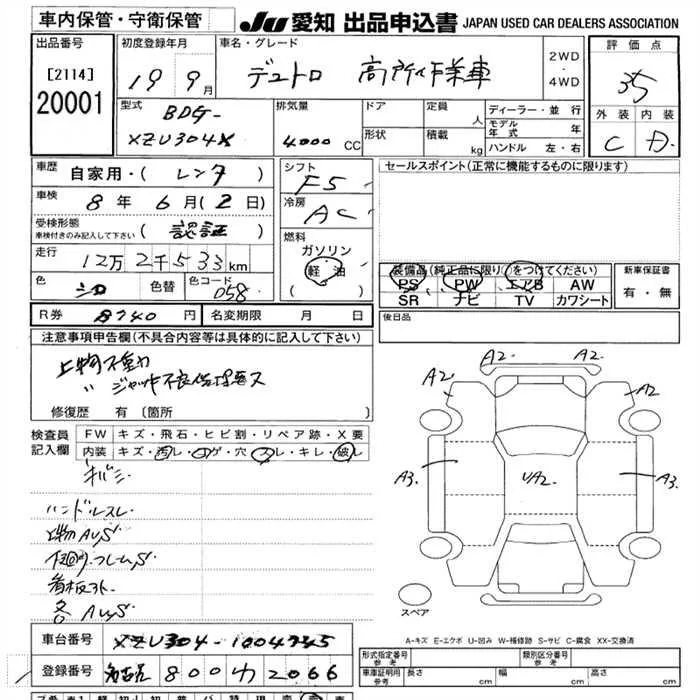 車内保管・守衛保管
JU 愛知 出品申込書 JAPAN USED CAR DEALERS ASSOCIATION
出品番号
[2114]
20001
初度登録年月
19 9月
車名・グレード
デュトロ 高所作業車
2WD
・
4WD
評価点
3.5
外装 内装
C D
型式
BDG-
XZU304X
排気量
4000 CC
ドア
形状
定員 人
積載 kg
ディーラー・並行
モデル年式 年
ハンドル 左・右
車歴 自家用・( レンタ )
車検 8年 6月(2日)
受検形態
車検付きのみ記入して下さい ( 認証 )
走行 12万 2千533km
色 シロ 色替 色コード 058
シフト F5
冷房 AC
燃料
ガソリン
(軽油)
セールスポイント(正常に機能するものに限ります)
装備品(純正品に限り○をつけてください)
PS PW エアB AW
SR ナビ TV カワシート
新車保証書
有・無
後日品
R券 8740円 名変期限 月 日
注意事項申告欄(不具合内容等は具体的に記入して下さい)
上物不動
〃 ジャッキ不良修理要ス
修復歴 有 〔箇所
検査員
記入欄
FW キズ・飛石・ヒビ割・リペア跡・X要
内装 キズ・汚レ・コゲ・穴・スレ・キレ・破レ
ハンドルスレ
上物AUS
看板跡
各AUS
A2. A2. A2
A3. UA2. A3.
スペア
A-キズ E-エクボ U-凹み W-補修跡 S-サビ C-腐食 XX-交換済
車台番号 XZU304-1004745
登録番号 名古屋 800 わ 2066
形式指定番号
参考
類別区分番号
参考
車庫証明用
参考
長さ cm 幅 cm 高さ cm